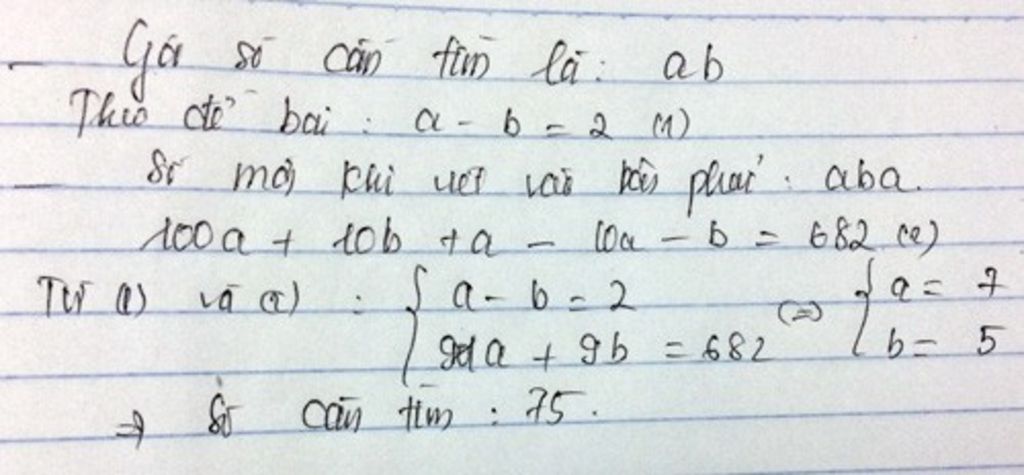 - Gọi số cần tìm là: ab
Theo đề bài: a - b = 2 (1)
- Số mới khi viết vào bên phải: aba.
100a + 10b + a - 10a - b = 682 (2)
Từ (1) và (2) : { a - b = 2 (=) { a = 7
91a + 9b = 682 b = 5
⇒ Số cần tìm : 75.